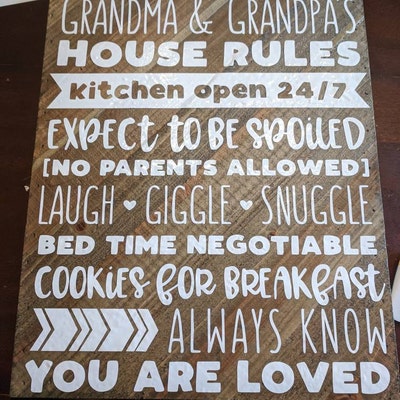 GRANDMA & GRANDPA'S
HOUSE RULES
Kitchen open 24/7
EXPECT to BE SPOILED
[NO PARENTS ALLOWED]
LAUGH ♥ GIGGLE ♥ SNUGGLE
BED TIME NEGOTIABLE
COOKIES FOR BREAKFAST
ALWAYS KNOW
YOU ARE LOVED